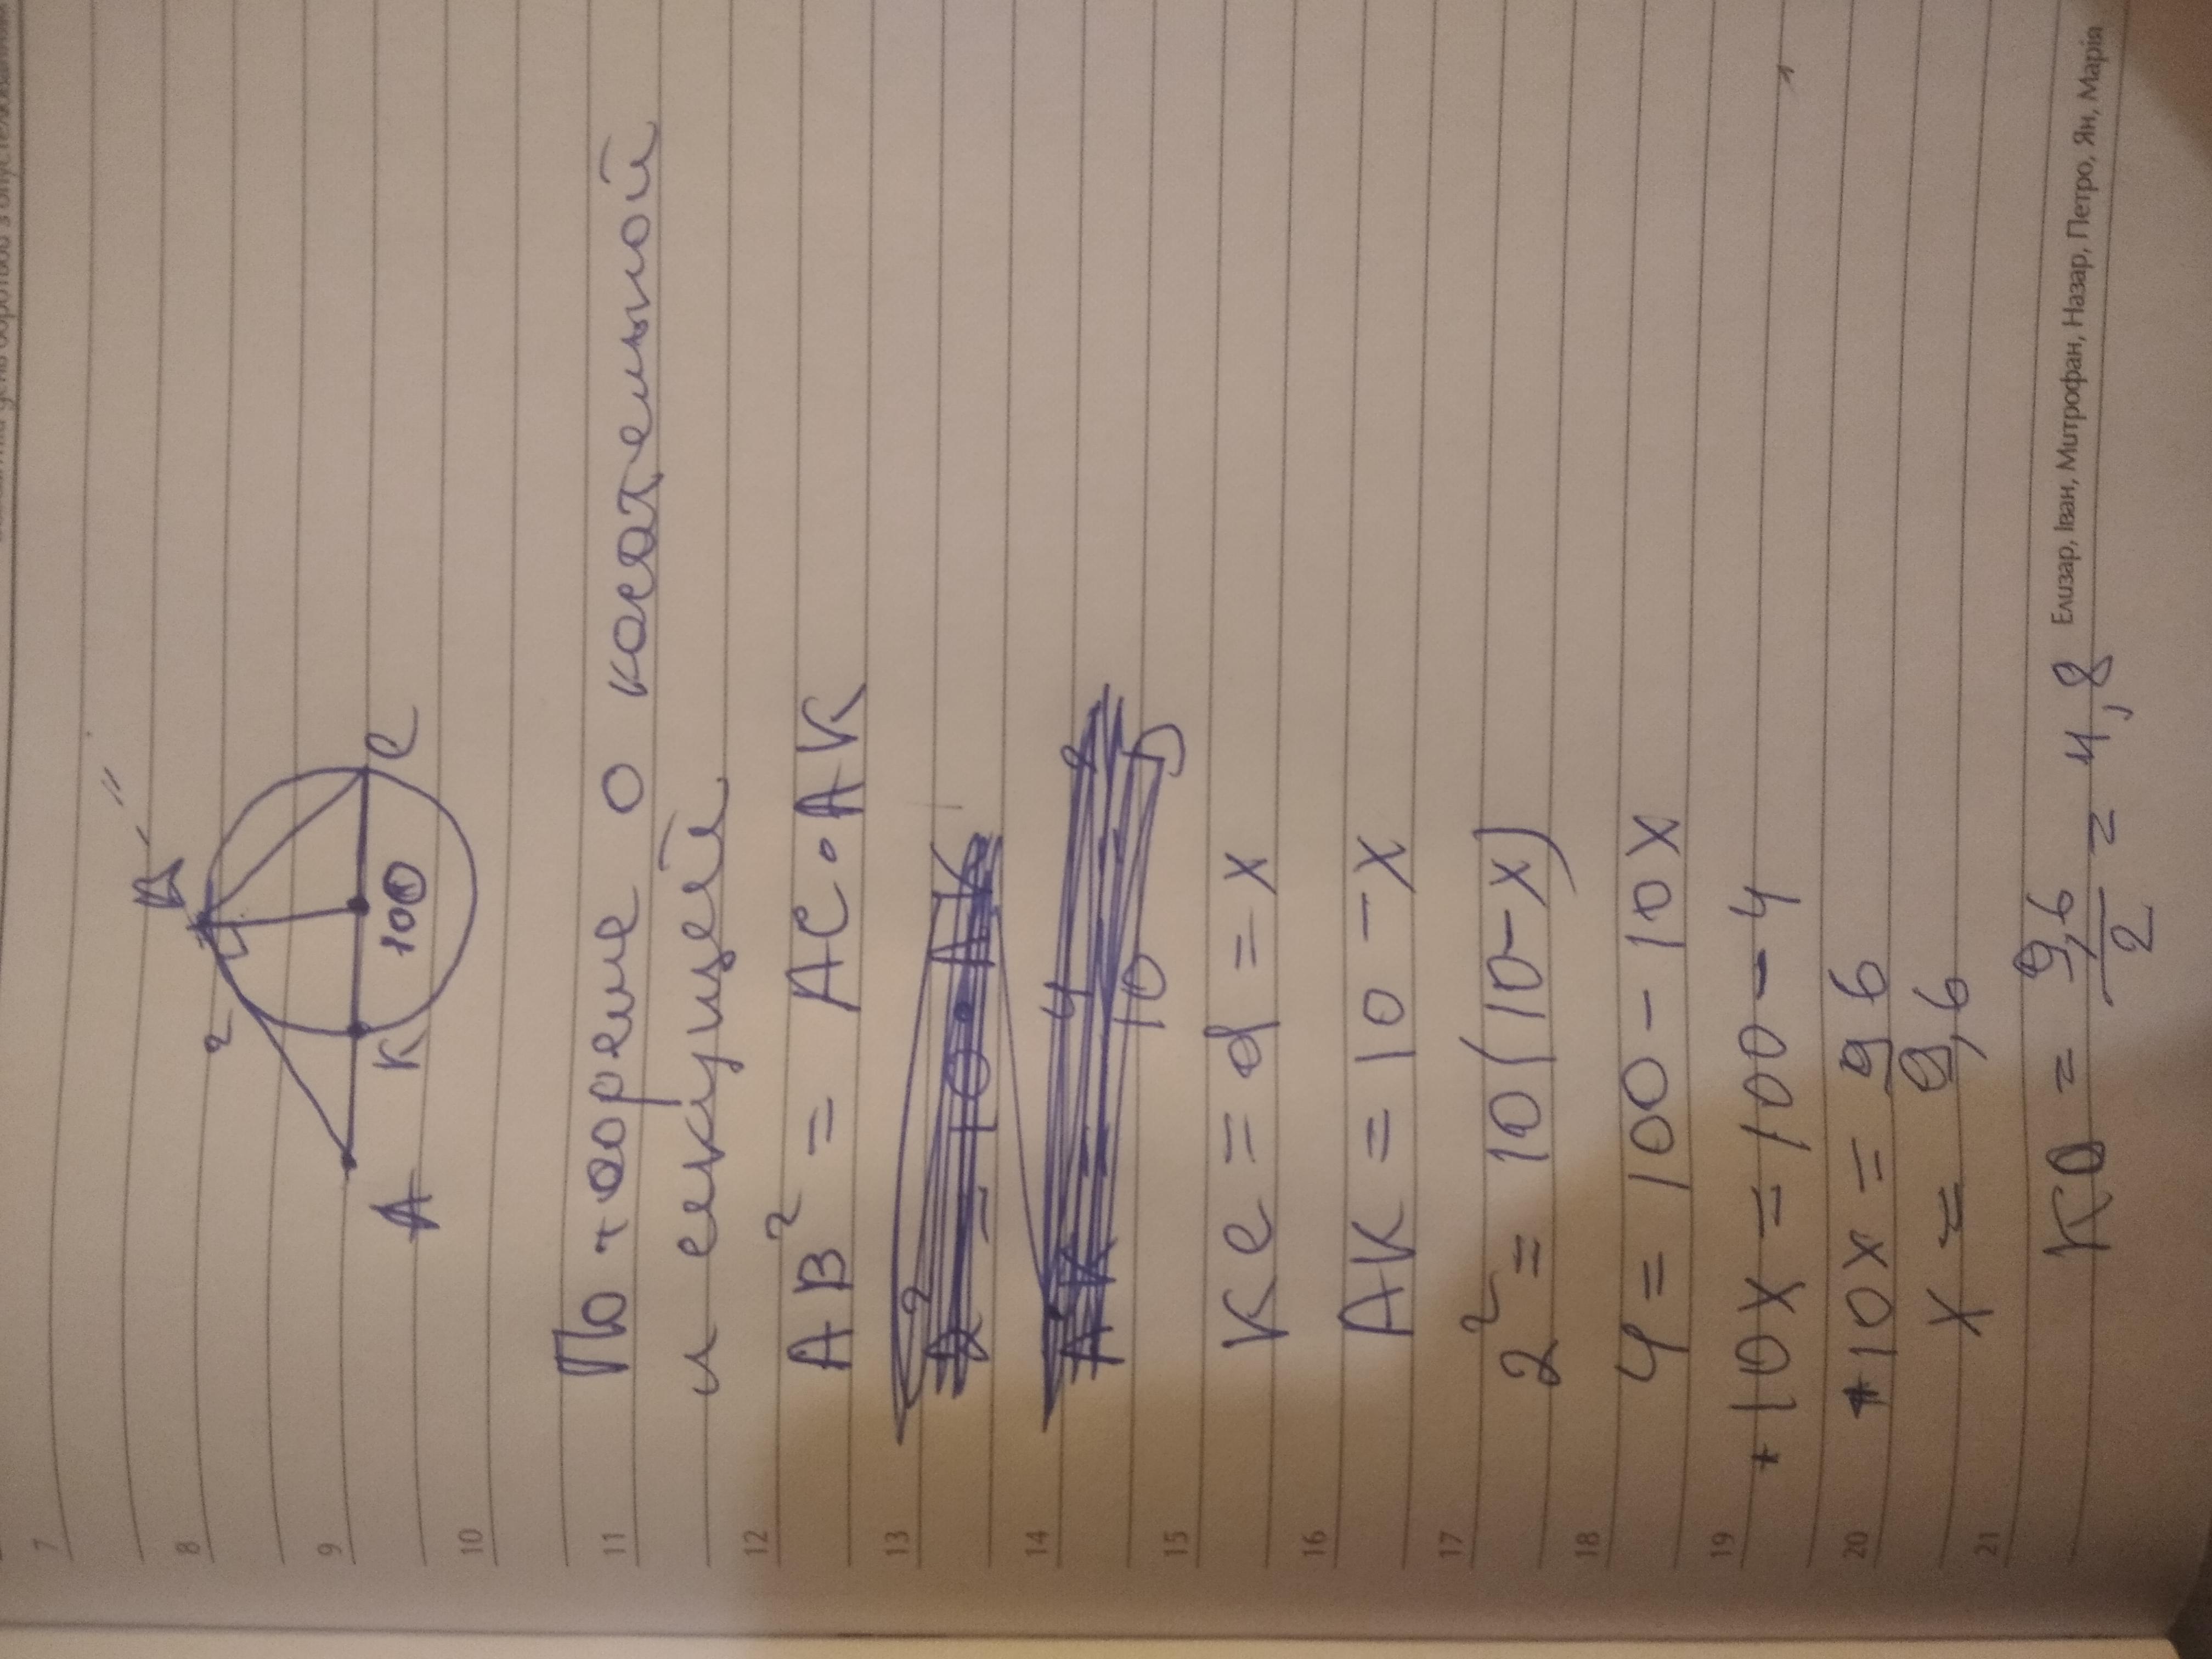 7
8
9
10
11
12
13
14
15
16
17
18
19
20
21
B
2
A
K
10
O
C
По теореме о касательной
и секущей
AB² = AC • AK
KC = d = x
AK = 10 - x
2² = 10(10-x)
4 = 100 - 10x
+10x = 100 - 4
+10x = 96
x = 9,6
KO = 9,6/2 = 4,8
Елизар, Іван, Митрофан, Назар, Петро, Ян, Марія